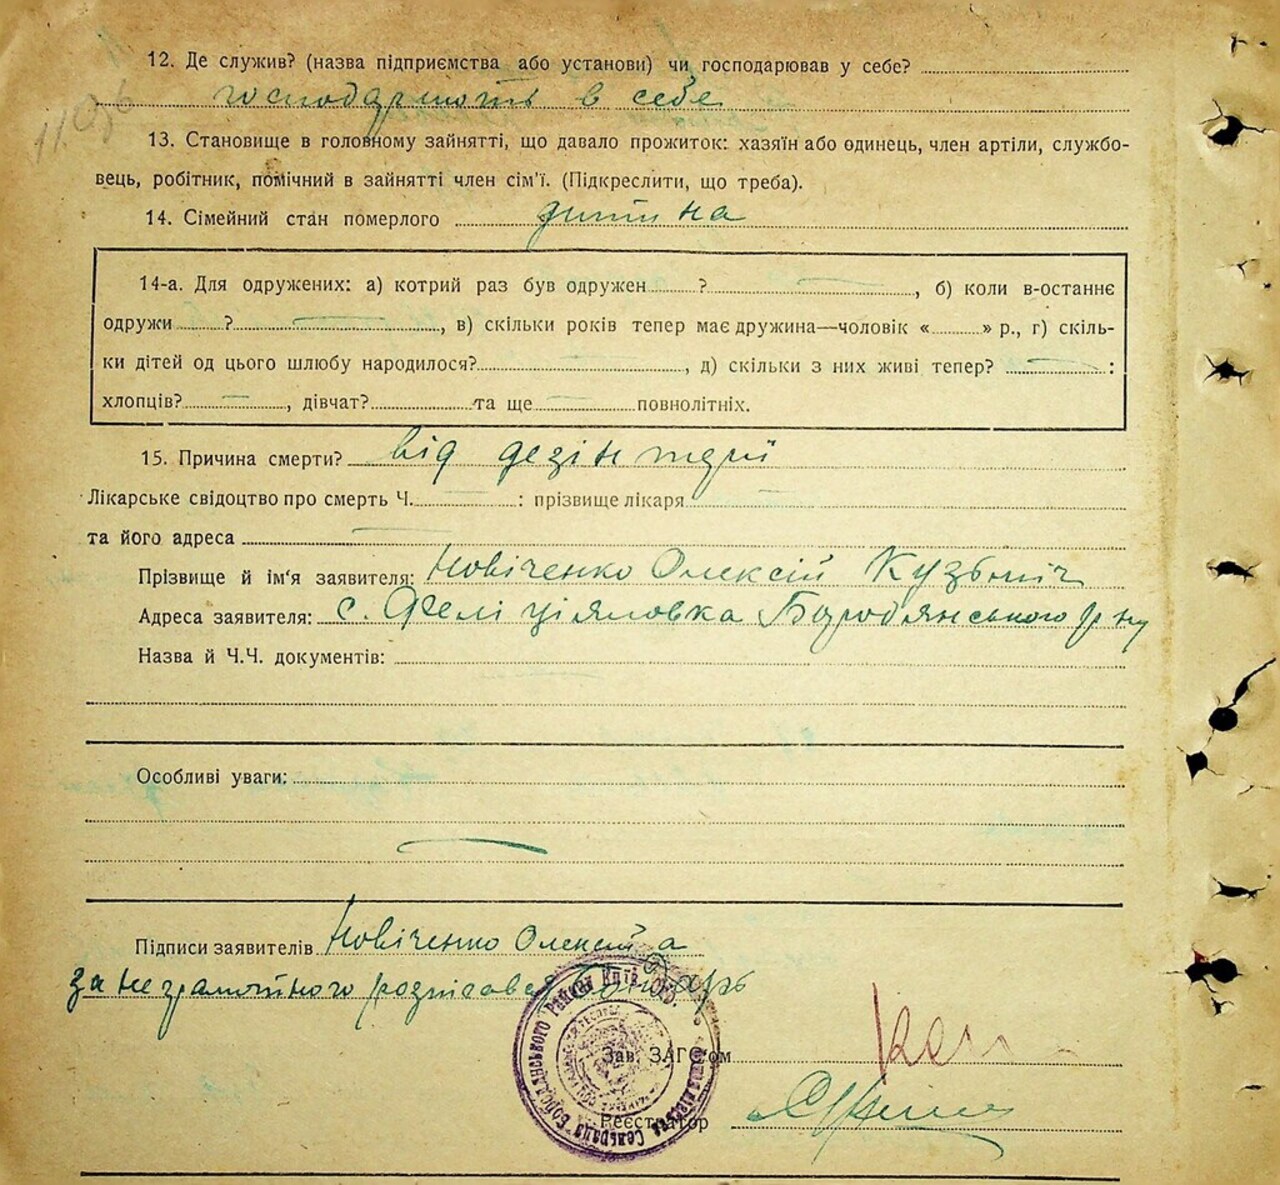 12. Де служив? (назва підприємства або установи) чи господарював у себе?
господарють в себе
13. Становище в головному зайнятті, що давало прожиток: хазяїн або одинець, член артілі, службо-
вець, робітник, помічний в зайнятті член сім'ї. (Підкреслити, що треба).
14. Сімейний стан померлого дитина
14-а. Для одружених: а) котрий раз був одружен ?, б) коли в-останнє
одружи ?, в) скільки років тепер має дружина—чоловік « » р., г) скіль-
ки дітей од цього шлюбу народилося?, д) скільки з них живі тепер? :
хлопців?, дівчат? та ще повнолітніх.
15. Причина смерти? від дезінтерії
Лікарське свідоцтво про смерть Ч. : прізвище лікаря
та його адреса
Прізвище й ім'я заявителя: Новіченко Олексій Кузьміч
Адреса заявителя: с. Феліціяловка Бородянського р-ну
Назва й Ч.Ч. документів:
Особливі уваги:
Підписи заявителів Новіченко Олексій а
за неграмотного розписавсь
Зав. ЗАГС'ом
Реєстратор